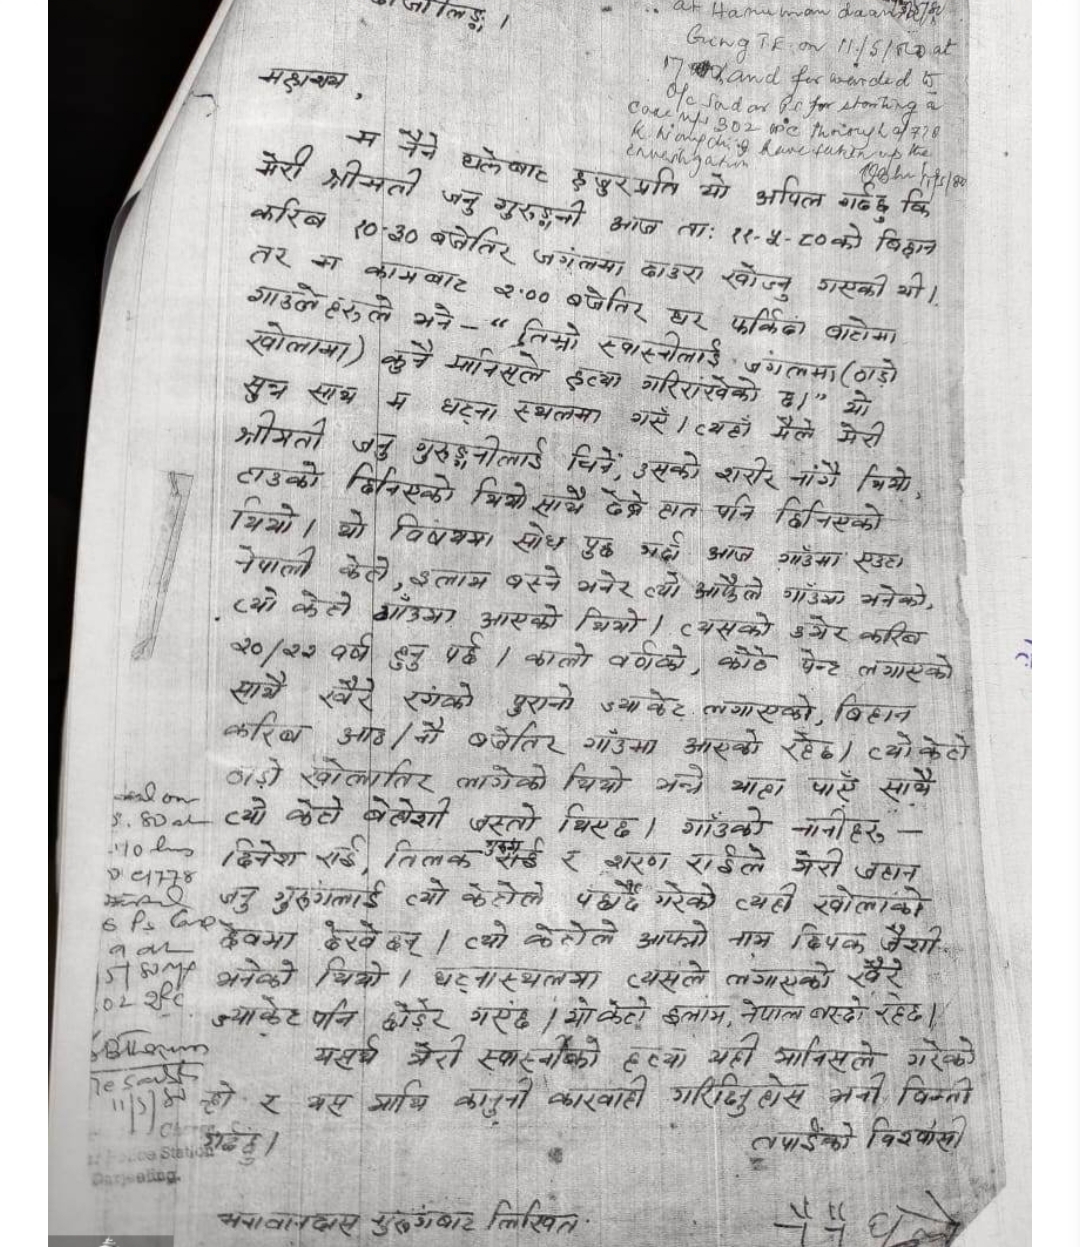 at Hanuman
G.R. on 11/5/80 at
and forwarded to
O/c Sadar P.S for starting a
case u/s 302 IPC through
have taken up the
investigation
महाशय,
म नैने घलेबाट हजुरप्रति यो अपिल गर्दछु कि
मेरी श्रीमती जनु गुरुङ्गनी आज ता: ११-५-८०को बिहान
करिब १०-३० बजेतिर जगंलमा दाउरा खोज्नु गएकी थी।
तर म कामबाट २.०० बजेतिर घर फर्किदा बाटोमा
गाउले हरुले भने - "तिम्रो स्वास्नीलाई जंगलमा (ठाडो
खोलामा) कुनै मानिसले हत्या गरिराखेको छ।" यो
सुन्न साथ म घट्ना स्थलमा गएँ। त्यहाँ मैले मेरी
श्रीमती जनु गुरुङ्गनीलाई चिनें, उसको शरीर नांगै थियो,
टाउको छिनिएको थियो साथै देब्रे हात पनि छिनिएको
थियो। यो विषयमा सोध पुछ गर्दा आज गाँउमा एउटा
नेपाली केटो, इलाम बस्ने भनेर त्यो आफैले गाँउमा भनेको,
त्यो केटो गाँउमा आएको थियो। त्यसको उमेर करिब
२०/२२ वर्ष हुनु पर्छ। कालो वर्णको, पेन्ट लगाएको
साथै खैरे रगंको पुरानो ज्याकेट लगाएको, बिहान
करिब आठ/नौ बजेतिर गाँउमा आएको रहेछ। त्यो केटो
ठाडो खोलातिर लागेको थियो भन्ने थाहा पाएँ साथै
त्यो केटो बेहोशी जस्तो थिएछ। गाँउको नानीहरु -
दिनेश राई, तिलक गुरुङ र शरण राईले मेरी जहान
जनु गुरुंगलाई त्यो केटोले पछ्याउदै गरेको त्यही खोलाको
देखे छन्। त्यो केटोले आफ्नो नाम दिपक जैशी
भनेको थियो। घट्नास्थलमा त्यसले लगाएको खैरे
ज्याकेट पनि छोडेर गएछ। यो केटो इलाम, नेपाल बस्दो रहेछ।
यसर्थ मेरी स्वास्नीको हत्या यही मानिसले गरेको
हो र यस माथि कानुनी कारवाही गरिदिनुहोस भनी विन्ती
गर्दछु।
तपाईंको विश्वासी
नैने घले
भगवानदास गुरुंगबाट लिखित.
11/5/80
Police Station
Darjeeling.